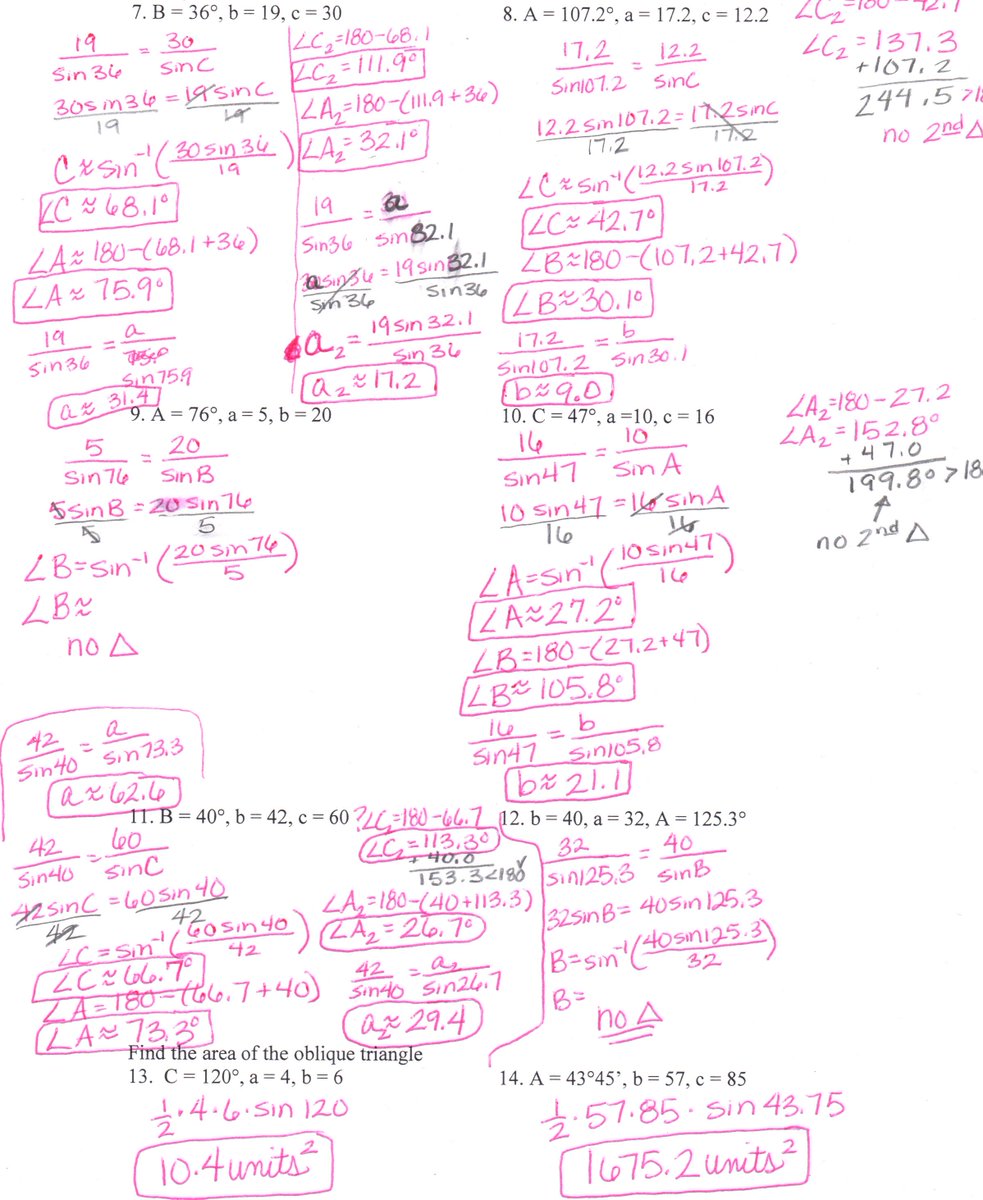 7. B = 36°, b = 19, c = 30
19/sin36 = 30/sinC
30sin36/19 = 19sinC/19
C ≈ sin⁻¹(30sin36/19)
∠C ≈ 68.1°
∠A ≈ 180-(68.1+36)
∠A ≈ 75.9°
19/sin36 = a/sin75.9
a ≈ 31.4
∠C₂=180-68.1
∠C₂=111.9°
∠A₂=180-(111.9+36)
∠A₂=32.1°
19/sin36 = a/sin32.1
a sin36/sin36 = 19sin32.1/sin36
a₂ = 19sin32.1/sin36
a₂ ≈ 17.2
8. A = 107.2°, a = 17.2, c = 12.2
17.2/sin107.2 = 12.2/sinC
12.2sin107.2/17.2 = 17.2sinC/17.2
∠C ≈ sin⁻¹(12.2sin107.2/17.2)
∠C ≈ 42.7°
∠B ≈ 180-(107.2+42.7)
∠B ≈ 30.1°
17.2/sin107.2 = b/sin30.1
b ≈ 9.0
∠C₂=180-42.7
∠C₂=137.3
+107.2
244.5 >18
no 2nd △
9. A = 76°, a = 5, b = 20
5/sin76 = 20/sinB
5sinB/5 = 20sin76/5
∠B=sin⁻¹(20sin76/5)
∠B≈
no △
10. C = 47°, a =10, c = 16
16/sin47 = 10/sinA
10sin47/16 = 16sinA/16
∠A=sin⁻¹(10sin47/16)
∠A≈27.2°
∠B=180-(27.2+47)
∠B≈105.8°
16/sin47 = b/sin105.8
b≈21.1
∠A₂=180-27.2
∠A₂=152.8°
+47.0
199.8° >18
no 2nd △
42/sin40 = a/sin73.3
a ≈ 62.6
11. B = 40°, b = 42, c = 60
42/sin40 = 60/sinC
42sinC/42 = 60sin40/42
∠C=sin⁻¹(60sin40/42)
∠C≈66.7°
∠A=180-(66.7+40)
∠A≈73.3°
?∠C₂=180-66.7
∠C₂=113.3°
+40.0
153.3<180 ✓
∠A₂=180-(40+113.3)
∠A₂=26.7°
42/sin40 = a₂/sin26.7
a₂≈29.4
12. b = 40, a = 32, A = 125.3°
32/sin125.3 = 40/sinB
32sinB=40sin125.3
B=sin⁻¹(40sin125.3/32)
B=
no △
Find the area of the oblique triangle
13. C = 120°, a = 4, b = 6
1/2·4·6·sin120
10.4units²
14. A = 43°45’, b = 57, c = 85
1/2·57·85·sin43.75
1675.2units²